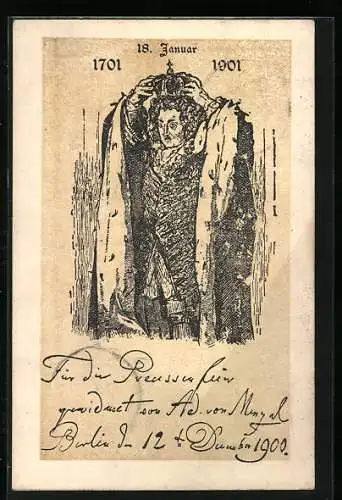 18. Januar
1701 1901
Für die Preussenfeier
gewidmet von Ad. von Menzel
Berlin den 12t Dezember 1900.